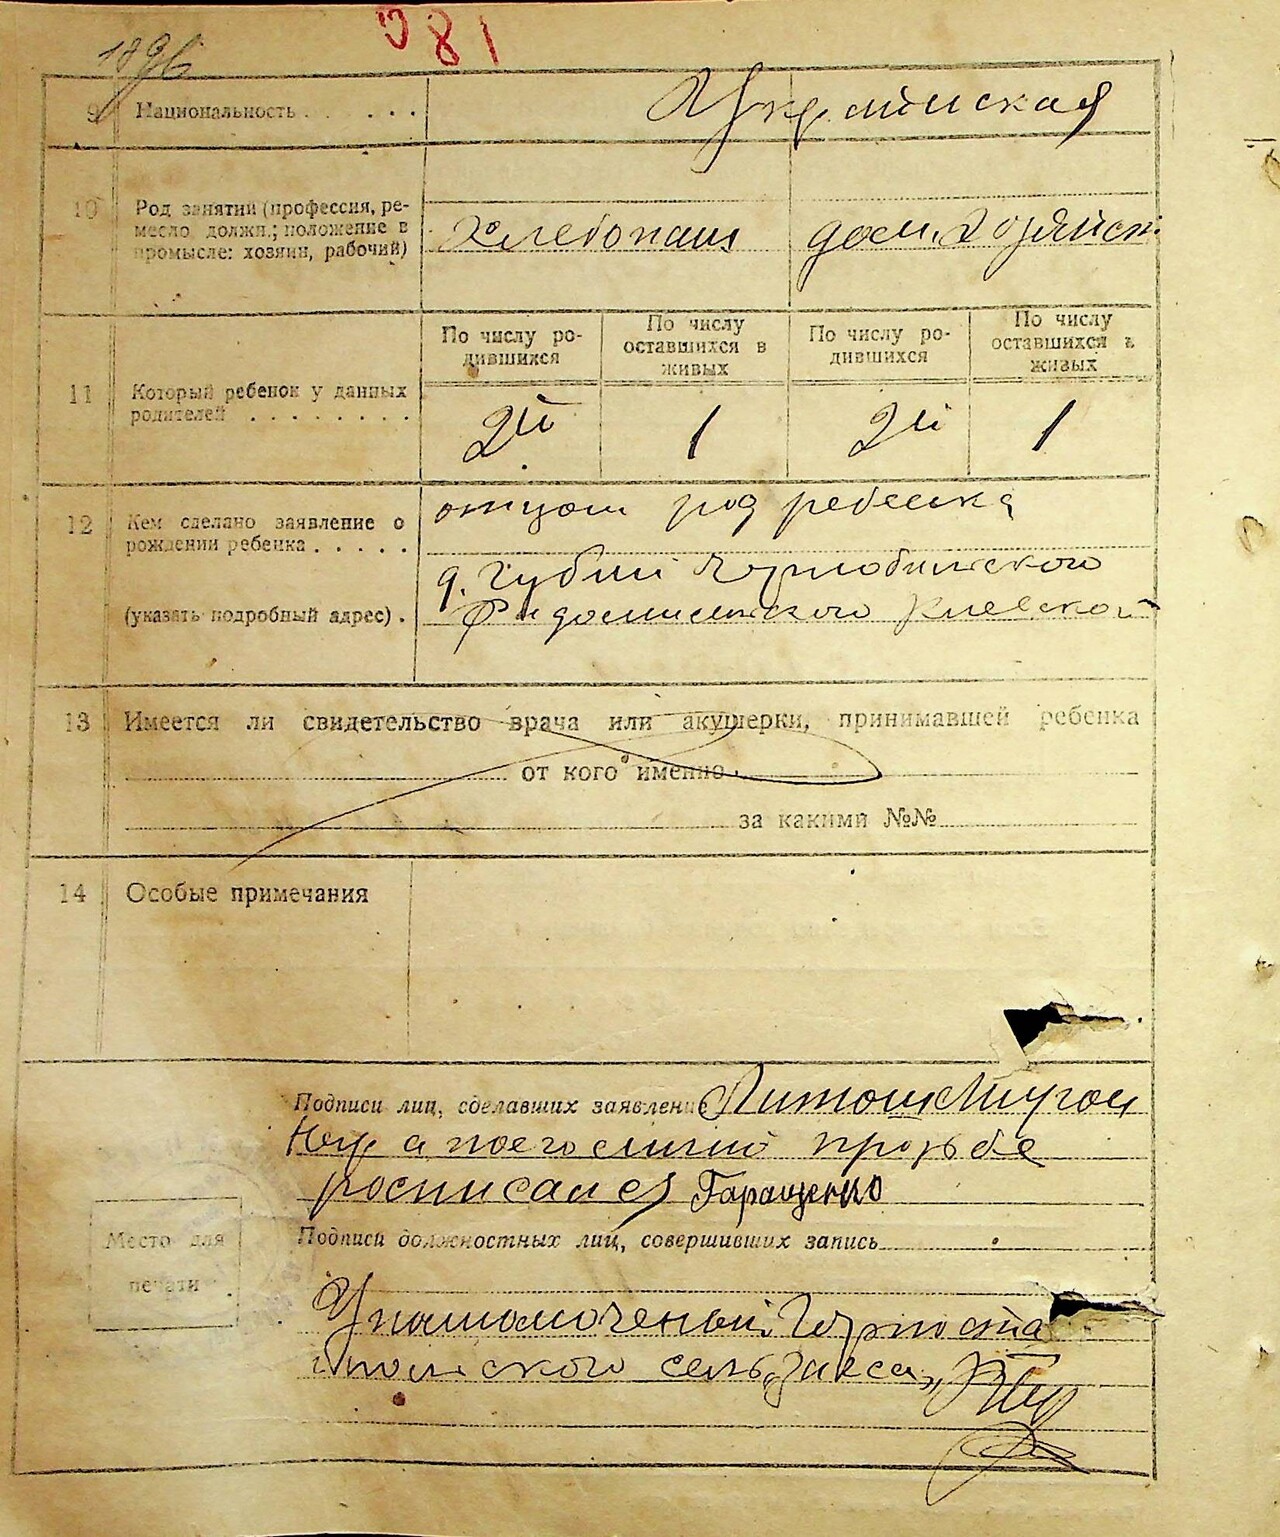 189б
081
9 Национальность Украинская
10 Род занятий (профессия, ре-
месло должн.; положение в
промысле: хозяин, рабочий)
Хлебопаш дом. хозяйск.
По числу ро-
дившихся
По числу
оставшихся в
живых
По числу ро-
дившихся
По числу
оставшихся в
живых
11 Который ребенок у данных
родителей
2й 1 2й 1
12 Кем сделано заявление о
рождении ребенка
отцом ребенка
(указать подробный адрес).
д. Губин Чернобильского
Киевской
13 Имеется ли свидетельство врача или акушерки, принимавшей ребенка
от кого именно
за какими №№
14 Особые примечания
Подписи лиц, сделавших заявление
а по его личной прозьбе
росписался Гаращенко
Подписи должностных лиц, совершивших запись
Место для
печати
Упаломоченый Горноста
польского сель, загса,